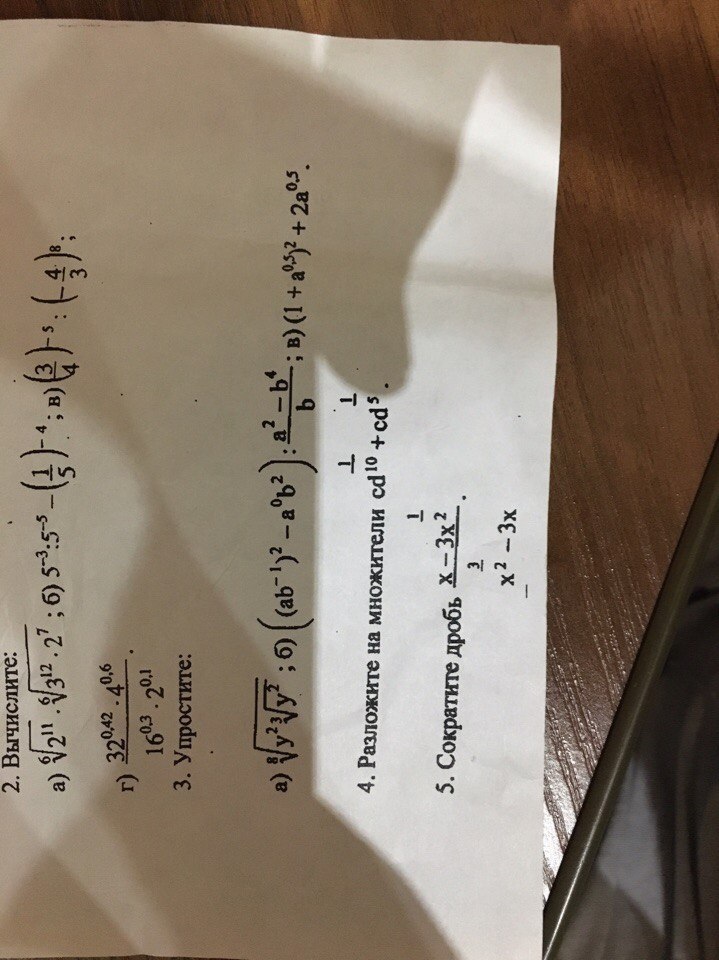 2. Вычислите:
а) ⁶√2¹¹ · ⁶√(3¹² · 2⁷) ; б) 5⁻³:5⁻⁵ − (1/5)⁻⁴ ; в) (3/4)⁻⁵ : (−4/3)⁸ ;
г) (32^0,42 · 4^0,6)/(16^0,3 · 2^0,1) .
3. Упростите:
а) ⁸√(y² ³√y²) ; б) ((ab⁻¹)² − a⁰b²) : (a² − b⁴)/b ; в) (1 + a^0,5)² + 2a^0,5 .
4. Разложите на множители cd^(1/10) + cd^(1/5) .
5. Сократите дробь (x − 3x^(1/2))/(x^(3/2) − 3x) .